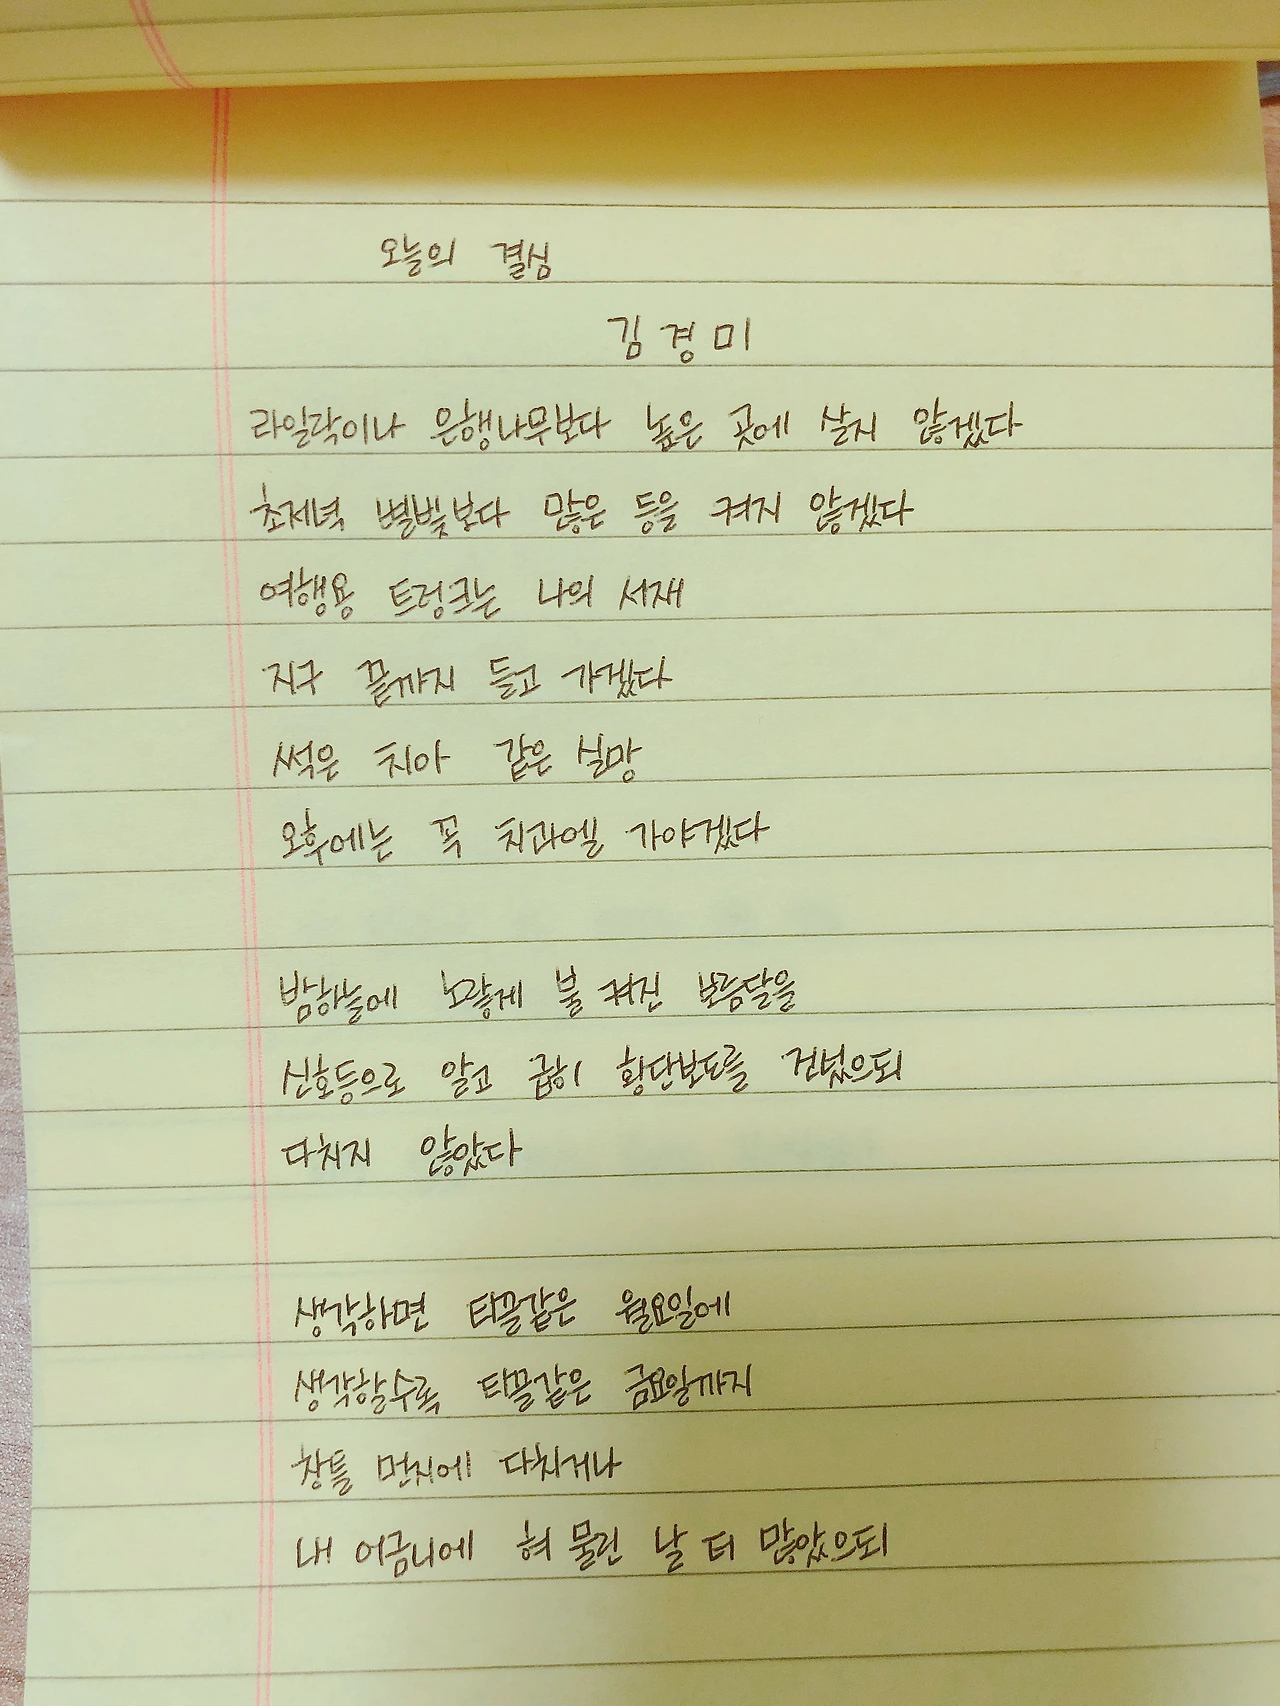 오늘의 결심
김경미
라일락이나 은행나무보다 높은 곳에 살지 않겠다
초저녁 별빛보다 많은 등을 켜지 않겠다
여행용 트렁크는 나의 서재
지구 끝까지 들고 가겠다
썩은 치아 같은 실망
오후에는 꼭 치과엘 가야겠다
밤하늘에 노랗게 불 켜진 보름달을
신호등으로 알고 급히 횡단보도를 건넜으되
다치지 않았다
생각하면 티끌같은 월요일에
생각할수록 티끌같은 금요일까지
창틀 먼지에 다치거나
내 어금니에 혀 물린 날 더 많았으되